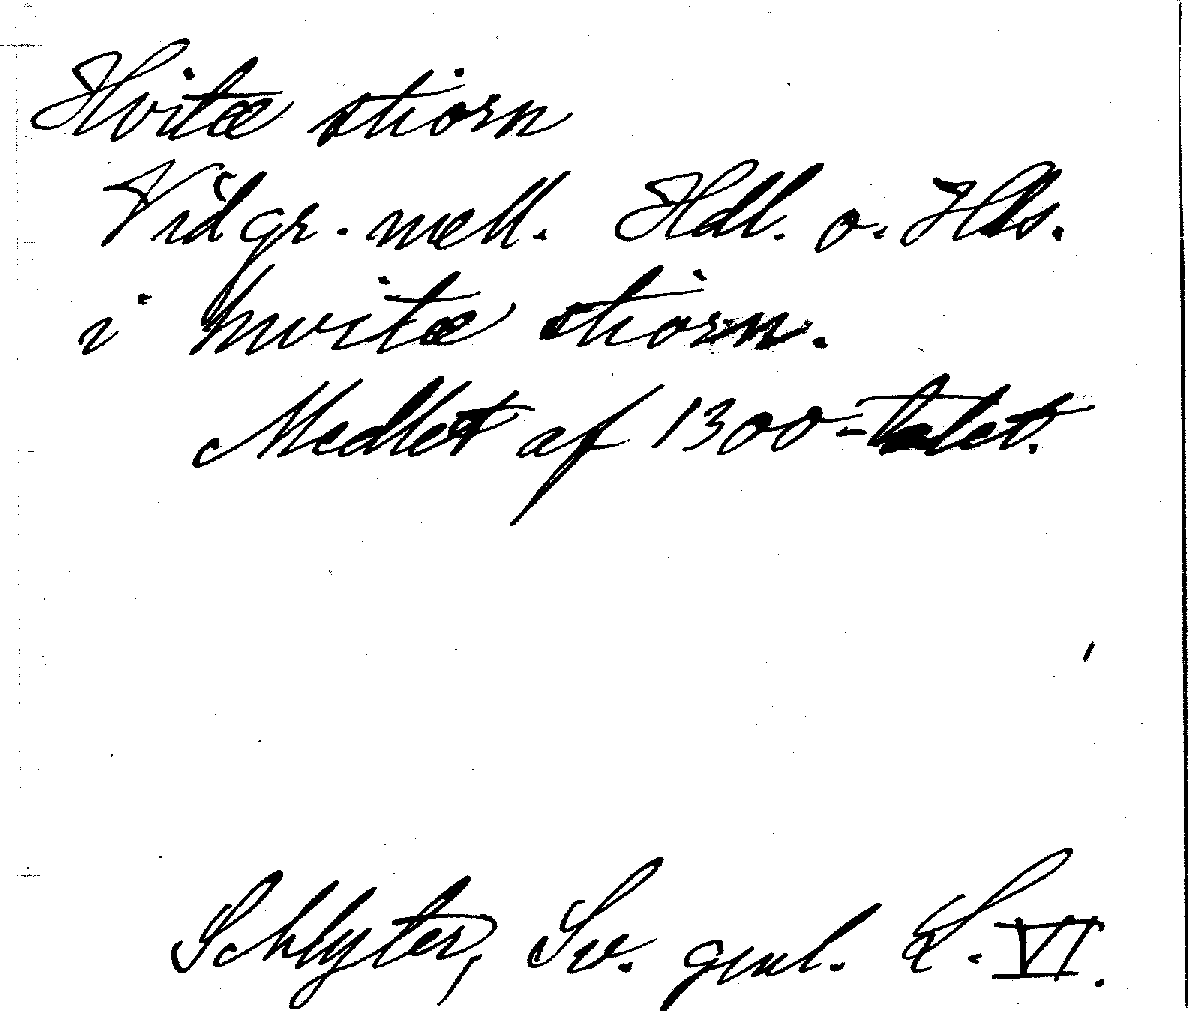 Hvitæ stiorn
Vid gr. mell. Hdl. o. Hls.
i hwitæ stiorn.
Medlet af 1300-talet.
Schlyter, Sv. gml. L. VI.